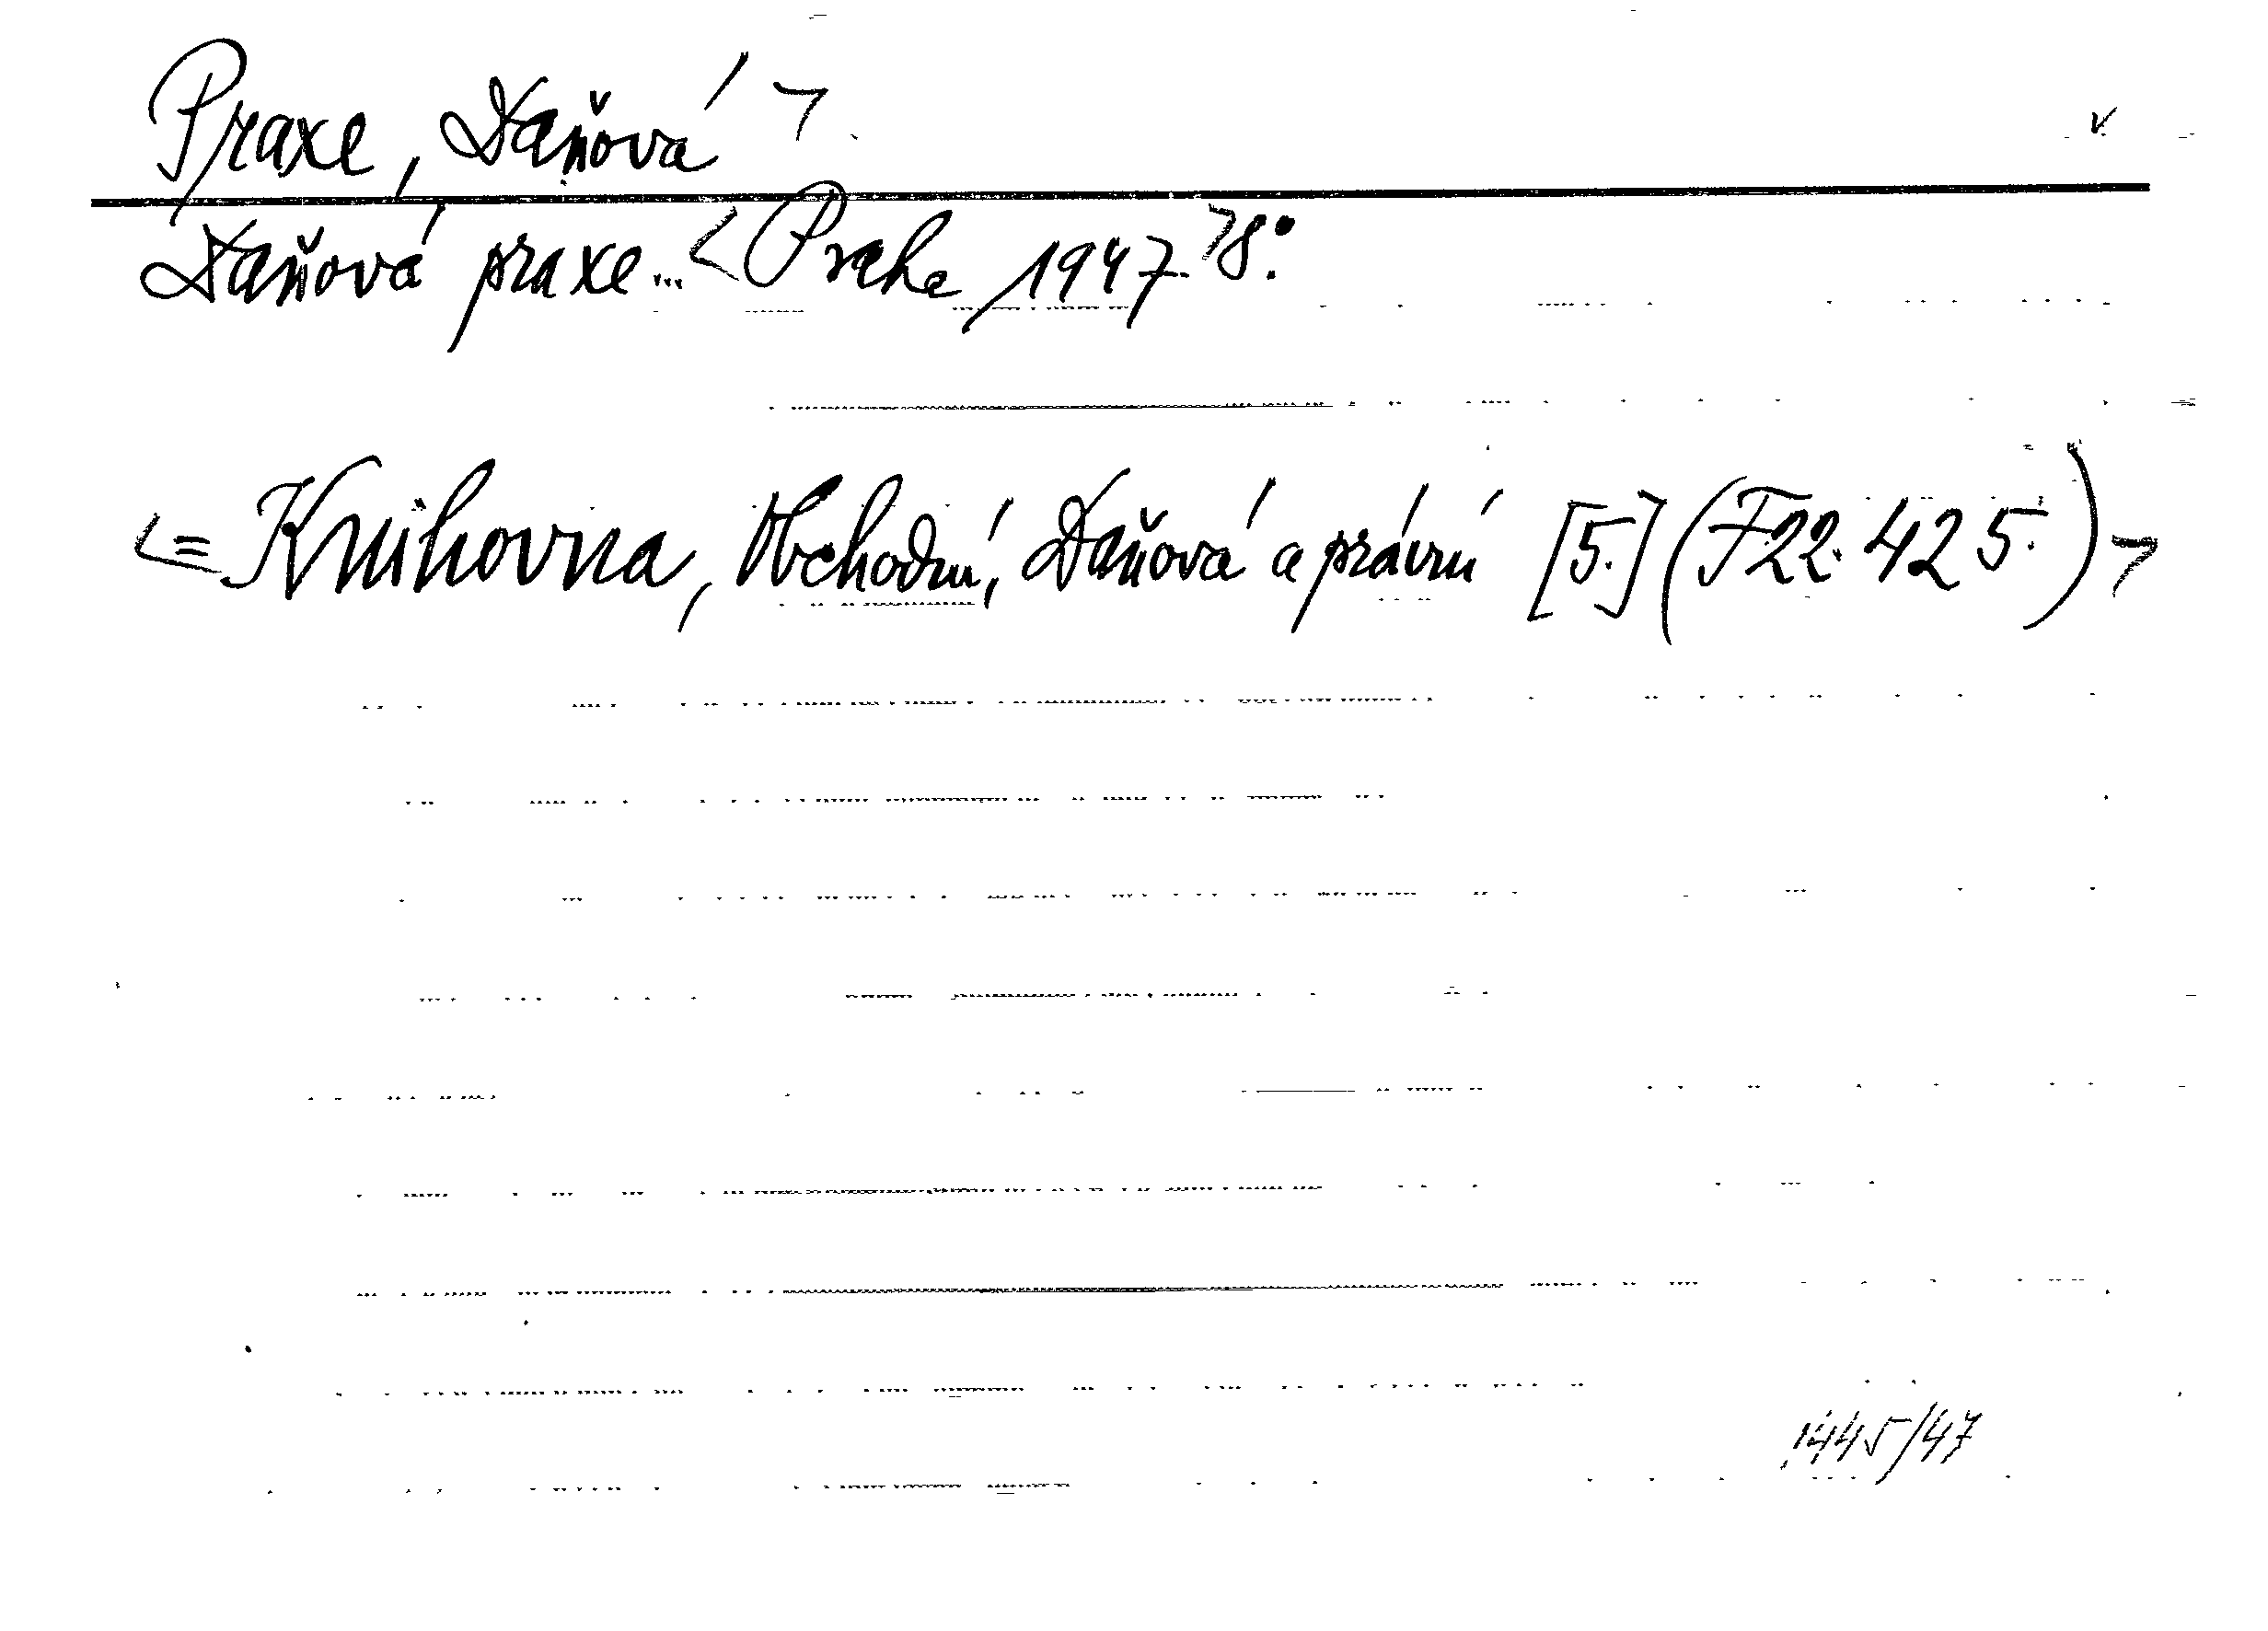 Praxe, Daňová >
v.
Daňová praxe... < Praha, 1947. > 8°.
<= Knihovna, Obchodní, Daňová a právní [5.] (F22.425.) >
1445/47